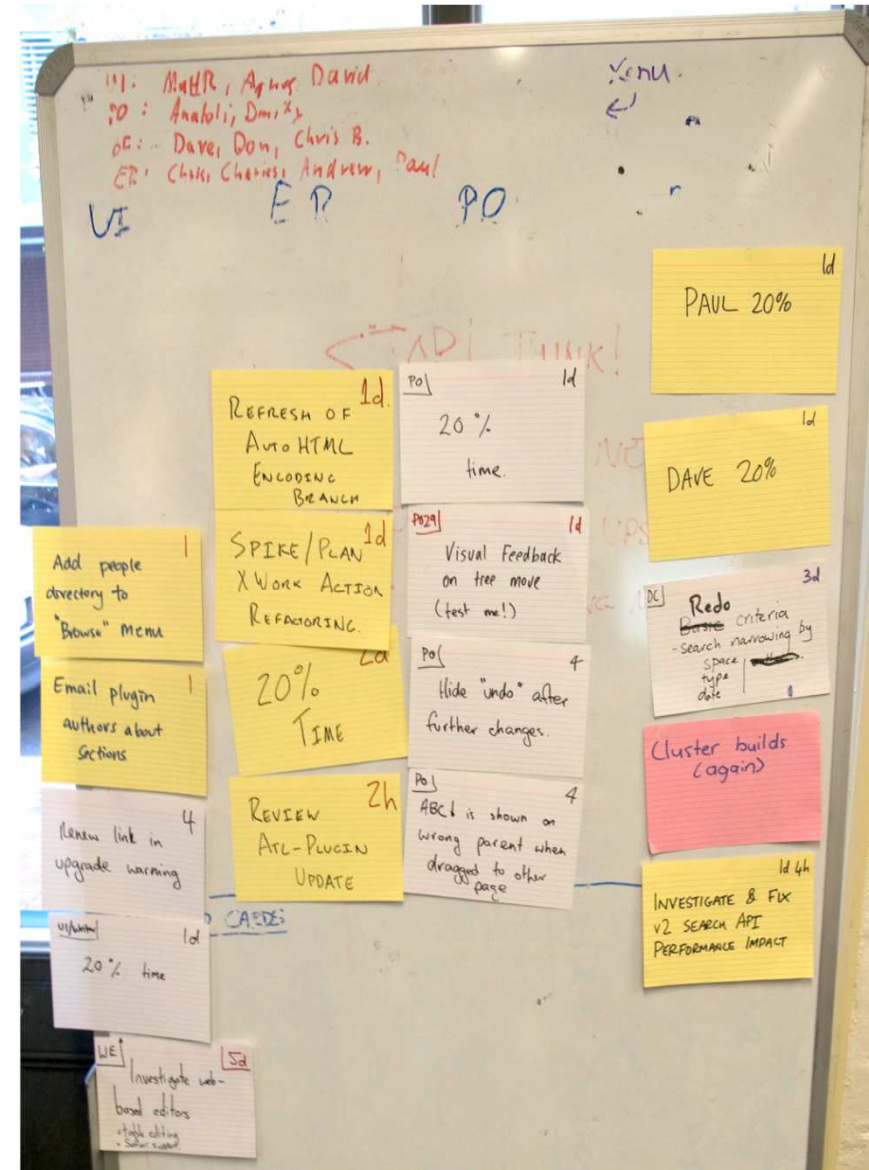 UI: MattR, Agnes, David
PO: Anatoli, Dmitry
DC: Dave, Don, Chris B.
ER: Chris, Charles, Andrew, Paul
UI
ER
PO
1
Add people
directory to
"Browse" menu
1
Email plugin
authors about
Sections
4
Renew link in
upgrade warning
UI/Writer
1d
20% time
WE
5d
Investigate web-
based editors
• table editing
• Safari support
1d.
REFRESH OF
AUTO HTML
ENCODING
BRANCH
1d
SPIKE/PLAN
XWORK ACTION
REFACTORING.
2d
20%
TIME
2h
REVIEW
ATL-PLUGIN
UPDATE
CARDS
PO
1d
20%
time.
PO29
1d
Visual Feedback
on tree move
(test me!)
PO
4
Hide "undo" after
further changes.
PO
4
ABC↓ is shown on
wrong parent when
dragged to other
page
1d
PAUL 20%
1d
DAVE 20%
DC
3d
Redo
Basic criteria
- search narrowing by
space
type
date
Cluster builds
(again)
1d 4h
INVESTIGATE & FIX
V2 SEARCH API
PERFORMANCE IMPACT